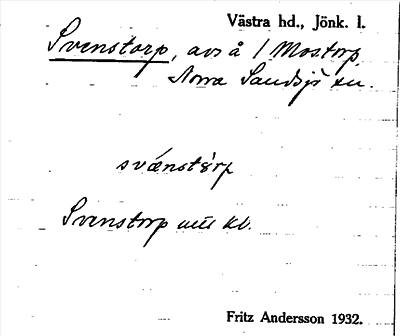 Västra hd., Jönk. l.
Svenstorp, avs å 1 Mostorp
Norra Sandsjö sn.
svǽnstòrp
Svenstorp mtl kb.
Fritz Andersson 1932.